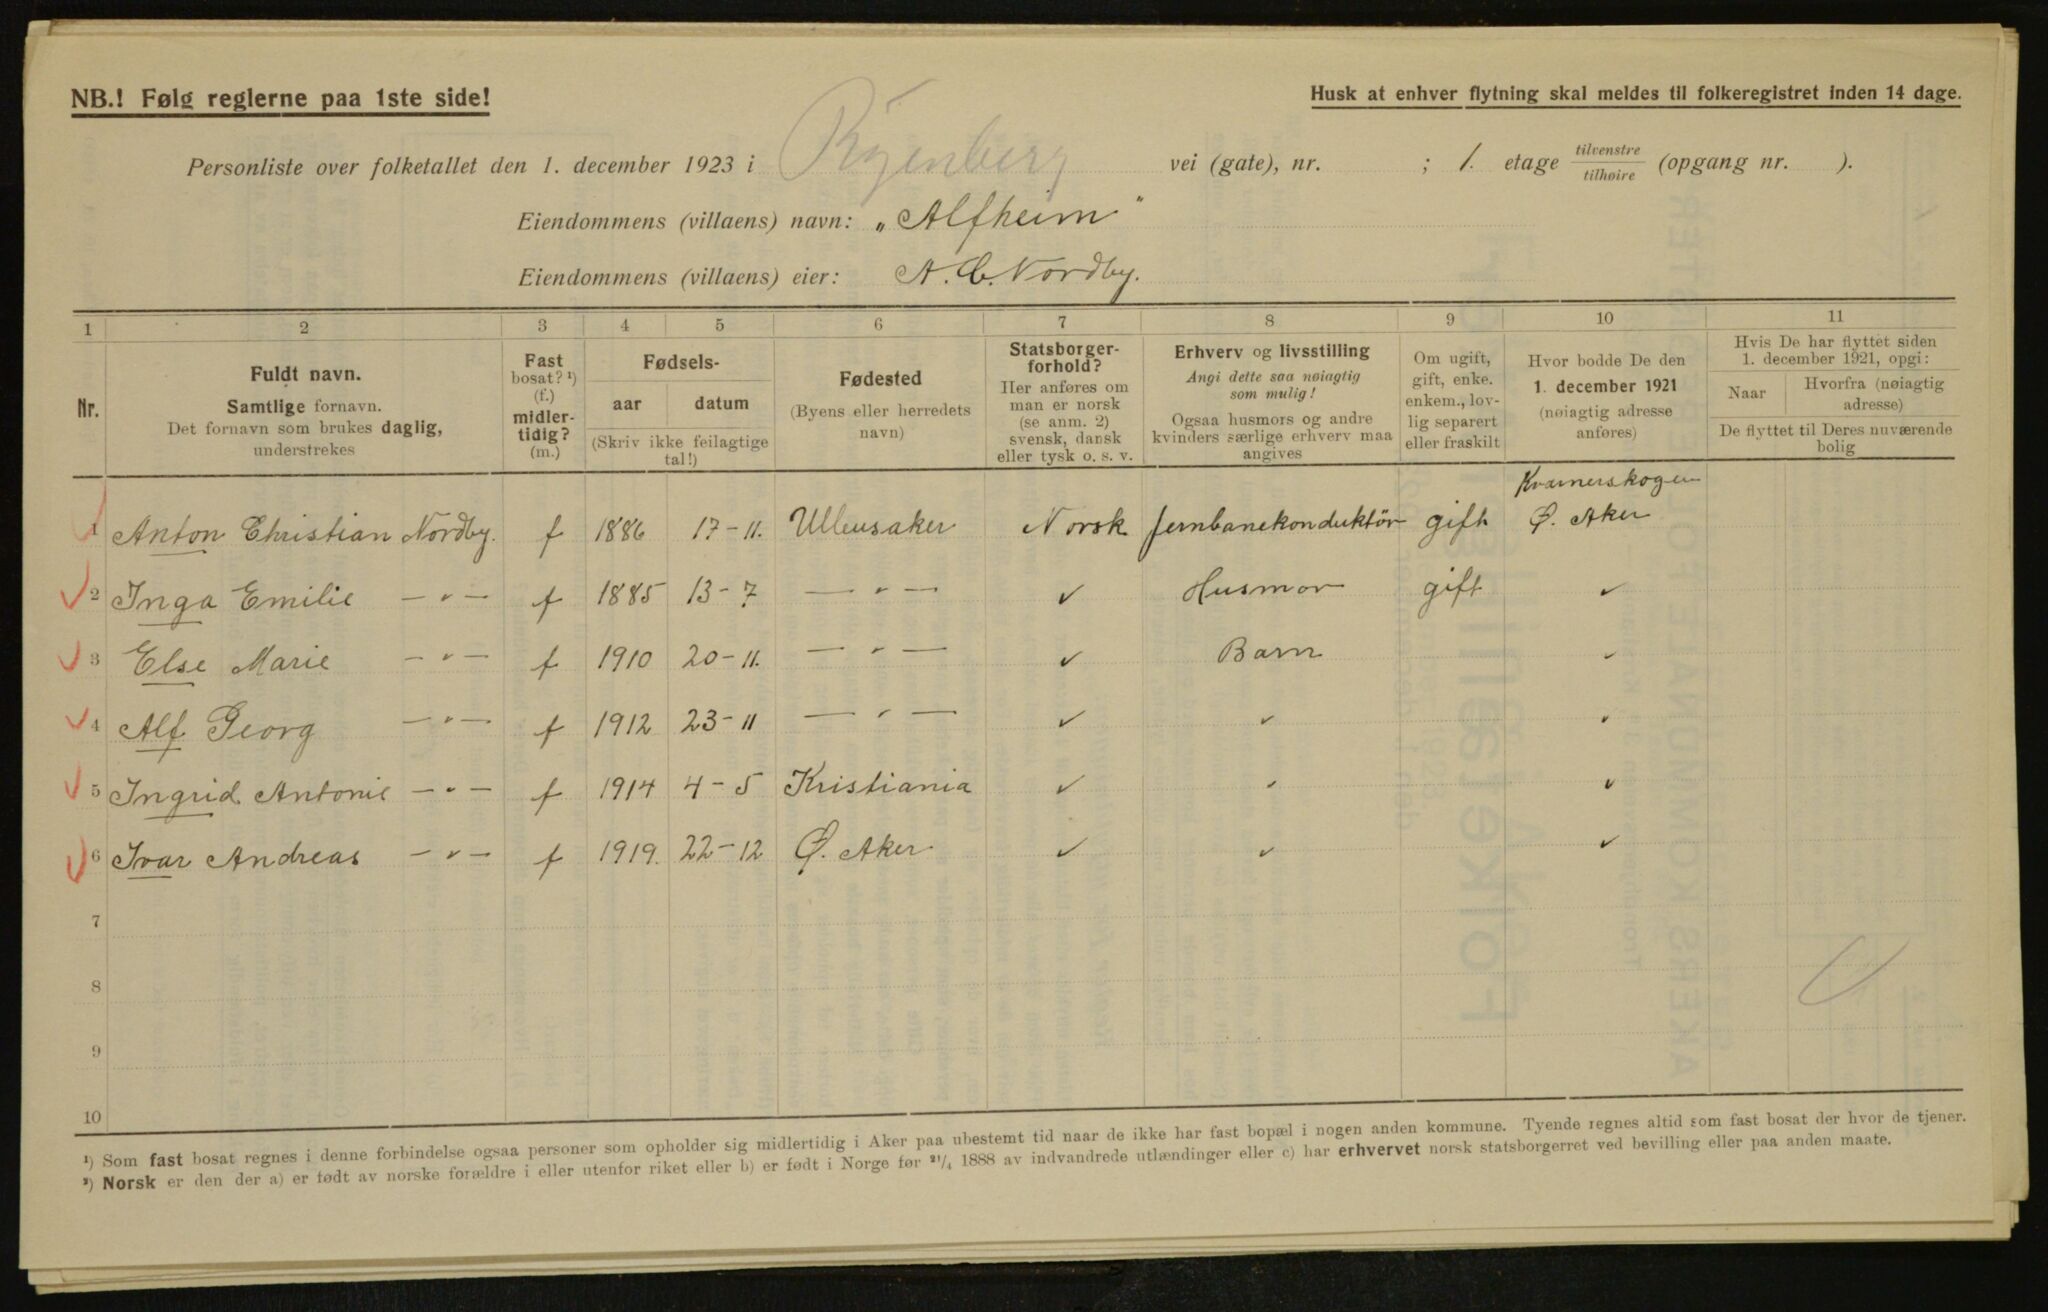 NB.! Følg reglerne paa 1ste side!
Husk at enhver flytning skal meldes til folkeregistret inden 14 dage.
Personliste over folketallet den 1. december 1923 i Ryenberg vei (gate), nr. ; 1. etage tilvenstre tilhøire (opgang nr. ).
Eiendommens (villaens) navn: „Alfheim"
Eiendommens (villaens) eier: A. C. Nordby.
1 2 3 4 5 6 7 8 9 10 11
Nr.
Fuldt navn.
Samtlige fornavn.
Det fornavn som brukes daglig,
understrekes
Fast
bosat? ¹)
(f.)
midler-
tidig?
(m.)
Fødsels-
aar datum
(Skriv ikke feilagtige
tal!)
Fødested
(Byens eller herredets
navn)
Statsborger-
forhold?
Her anføres om
man er norsk
(se anm. 2)
svensk, dansk
eller tysk o. s. v.
Erhverv og livsstilling
Angi dette saa nøiagtig
som mulig!
Ogsaa husmors og andre
kvinders særlige erhverv maa
angives
Om ugift,
gift, enke.
enkem., lov-
lig separert
eller fraskilt
Hvor bodde De den
1. december 1921
(nøiagtig adresse
anføres)
Hvis De har flyttet siden
1. december 1921, opgi:
Naar Hvorfra (nøiagtig
adresse)
De flyttet til Deres nuværende
bolig
Kværnerskogen
1 Anton Christian Nordby. f 1886 17-11. Ullensaker Norsk Jernbanekonduktör gift Ø. Aker
2 Inga Emilie — " — f 1885 13-7 — " — ✓ Husmor gift ✓
3 Else Marie — " — f 1910 20-11. — " — ✓ Barn ✓
4 Alf Georg — " — f 1912 23-11 — " — ✓ ✓ ✓
5 Ingrid Antonie — " — f 1914 4-5 Kristiania ✓ ✓ ✓
6 Ivar Andreas — " — f 1919. 22-12 Ø. Aker ✓ ✓ ✓
7
8
9
10
¹) Som fast bosat regnes i denne forbindelse ogsaa personer som opholder sig midlertidig i Aker paa ubestemt tid naar de ikke har fast bopæl i nogen anden kommune. Tyende regnes altid som fast bosat der hvor de tjener.
²) Norsk er den der a) er født av norske forældre i eller utenfor riket eller b) er født i Norge før 21/4 1888 av indvandrede utlændinger eller c) har erhvervet norsk statsborgerret ved bevilling eller paa anden maate.